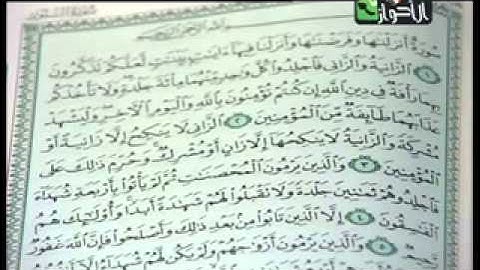 الأحواز
بسم الله الرحمن الرحيم
سورة أنزلناها وفرضناها وأنزلنا فيها ءايات بينات لعلكم تذكرون
١ الزانية والزاني فاجلدوا كل واحد منهما مائة جلدة ولا تأخذكم
بهما رأفة في دين الله إن كنتم تؤمنون بالله واليوم الآخر وليشهد
عذابهما طائفة من المؤمنين ٢ الزاني لا ينكح إلا زانية أو
مشركة والزانية لا ينكحها إلا زان أو مشرك وحرم ذلك على
المؤمنين ٣ والذين يرمون المحصنات ثم لم يأتوا بأربعة شهداء
فاجلدوهم ثمانين جلدة ولا تقبلوا لهم شهادة أبدا وأولئك هم
الفاسقون ٤ إلا الذين تابوا من بعد ذلك وأصلحوا فإن الله غفور
رحيم ٥ والذين يرمون أزواجهم ولم يكن لهم شهداء إلا أنفسهم